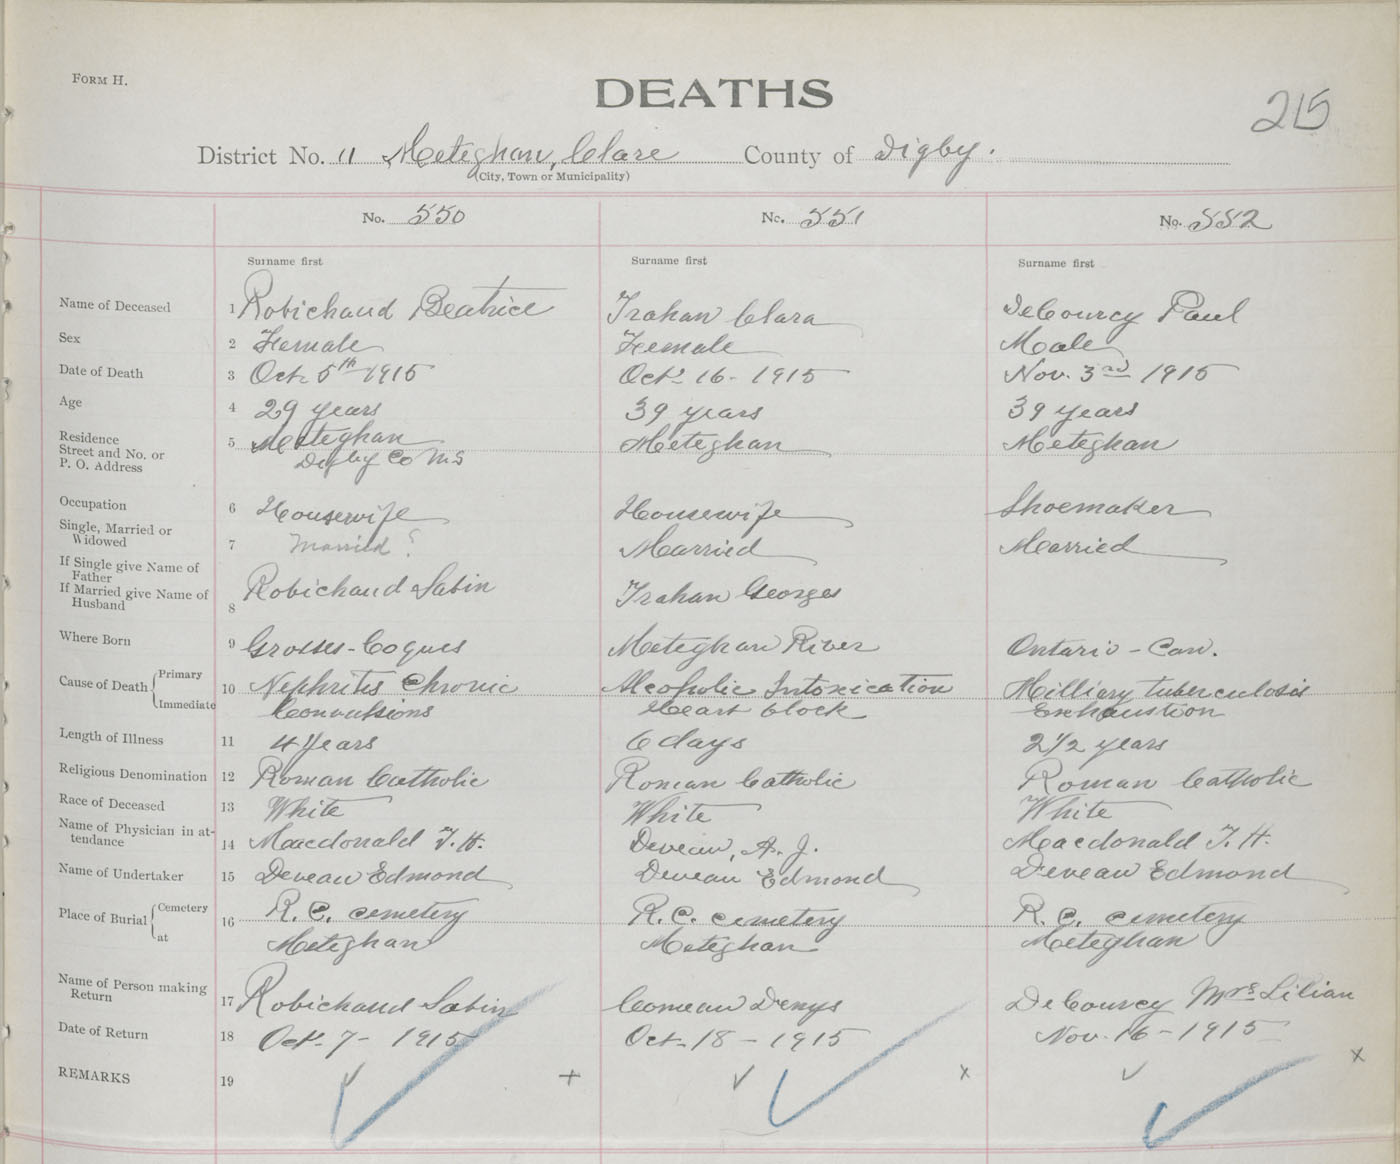 FORM H.
DEATHS
215
District No. 11 Meteghan, Clare County of Digby.
(City, Town or Municipality)
No. 550 No. 551 No. 552
Surname first Surname first Surname first
Name of Deceased 1 Robichaud Beatrice Trahan Clara DeCourcy Paul
Sex 2 Female Female Male
Date of Death 3 Oct. 5th 1915 Oct. 16 - 1915 Nov. 3rd 1915
Age 4 29 years 39 years 39 years
Residence
Street and No. or
P. O. Address 5 Meteghan Meteghan Meteghan
Digby Co N.S
Occupation 6 Housewife Housewife Shoemaker
Single, Married or
Widowed 7 Married ? Married Married
If Single give Name of
Father
If Married give Name of
Husband 8 Robichaud Sabin Trahan Georges
Where Born 9 Grosses-Coques Meteghan River Ontario - Can.
Cause of Death Primary 10 Nephrites Chronic Alcoholic Intoxication Milliary tuberculosis
Immediate Convulsions Heart block Exhaustion
Length of Illness 11 4 years 6 days 2 1/2 years
Religious Denomination 12 Roman Catholic Roman Catholic Roman Catholic
Race of Deceased 13 White White White
Name of Physician in at-
tendance 14 Macdonald T. H. Deveau, A. J. Macdonald T. H.
Name of Undertaker 15 Deveau Edmond Deveau Edmond Deveau Edmond
Place of Burial Cemetery 16 R. C. cemetery R. C. cemetery R. C. cemetery
at Meteghan Meteghan Meteghan
Name of Person making
Return 17 Robichaud Sabin Comeau Denys DeCourcy Mrs Lilian
Date of Return 18 Oct. 7 - 1915 Oct - 18 - 1915 Nov. 16 - 1915
REMARKS 19 ✓ + ✓ x ✓ x